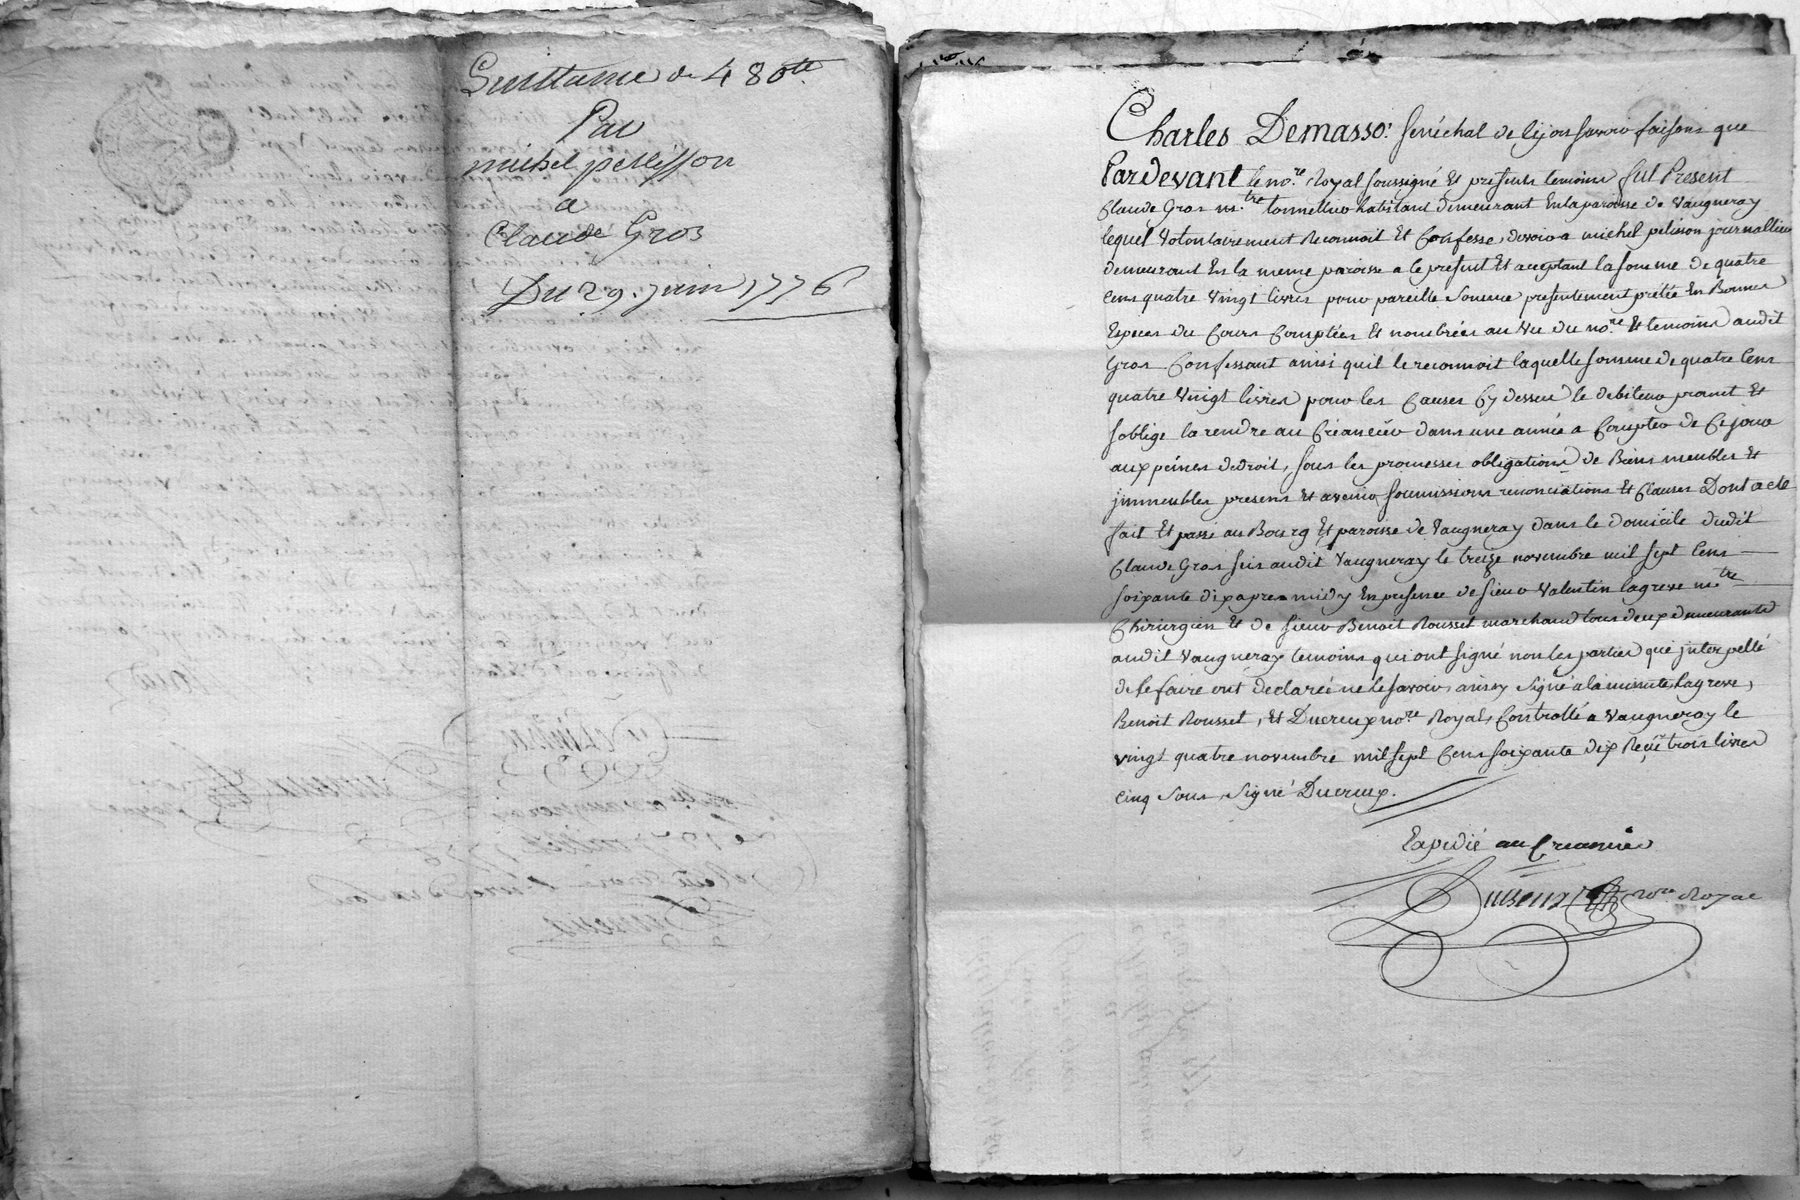 Quittance de 480tt
Par
michel pellisson
a
Claude Gros
Du 29. juin 1776
Charles Demasso. senéchal de lyon savoir faisons que
Pardevant le no.re Royal soussigné Et presents temoins fut Present
Claude Gros m.tre tonnellier habitant demeurant En la paroisse de Vaugneray
lequel Volontairement Reconnoit Et Confesse devoir a michel pelisson journallier
demeurant En la meme paroisse a ce present Et acceptant la somme de quatre
Cens quatre Vingt livres pour pareille Somme presentement prétée En Bonnes
Especes du Cours Comptées Et nombrées au Vu du no.re Et temoins audit
Gros Confessant ainsi quil le reconnoit laquelle somme de quatre Cens
quatre Vingt livres pour les Causes Cy dessu le debiteur promet Et
soblige la rendre au Créancier dans une année a Compter de Ce jour
aux peines de droit, sous les promesses obligations de Biens meubles Et
immeubles presens Et avenir soumissions renonciations Et Clauses Dont acte
fait Et passé au Bourg Et paroisse de Vaugneray dans le domicile dudit
Claude Gros sis audit Vaugneray le treize novembre mil sept Cens
soixante dix apres midy En presence de sieur Valentin lagreve m.tre
Chirurgien Et de sieur Benoit Rousset marchand tous deux demeurants
audit Vaugneray temoins qui ont signé non les parties que interpellé
de le faire ont declareé ne le savoir, ainsy Signé a la minutte, lagreve,
Benoit Rousset, Et Ducreux no.re Royal, Controllé a Vaugneray le
vingt quatre novembre mil sept Cens soixante dix Reçu trois livres
cinq sous, Signé Ducreux.
Expedié au Creancier
Ducreux no.re Royal